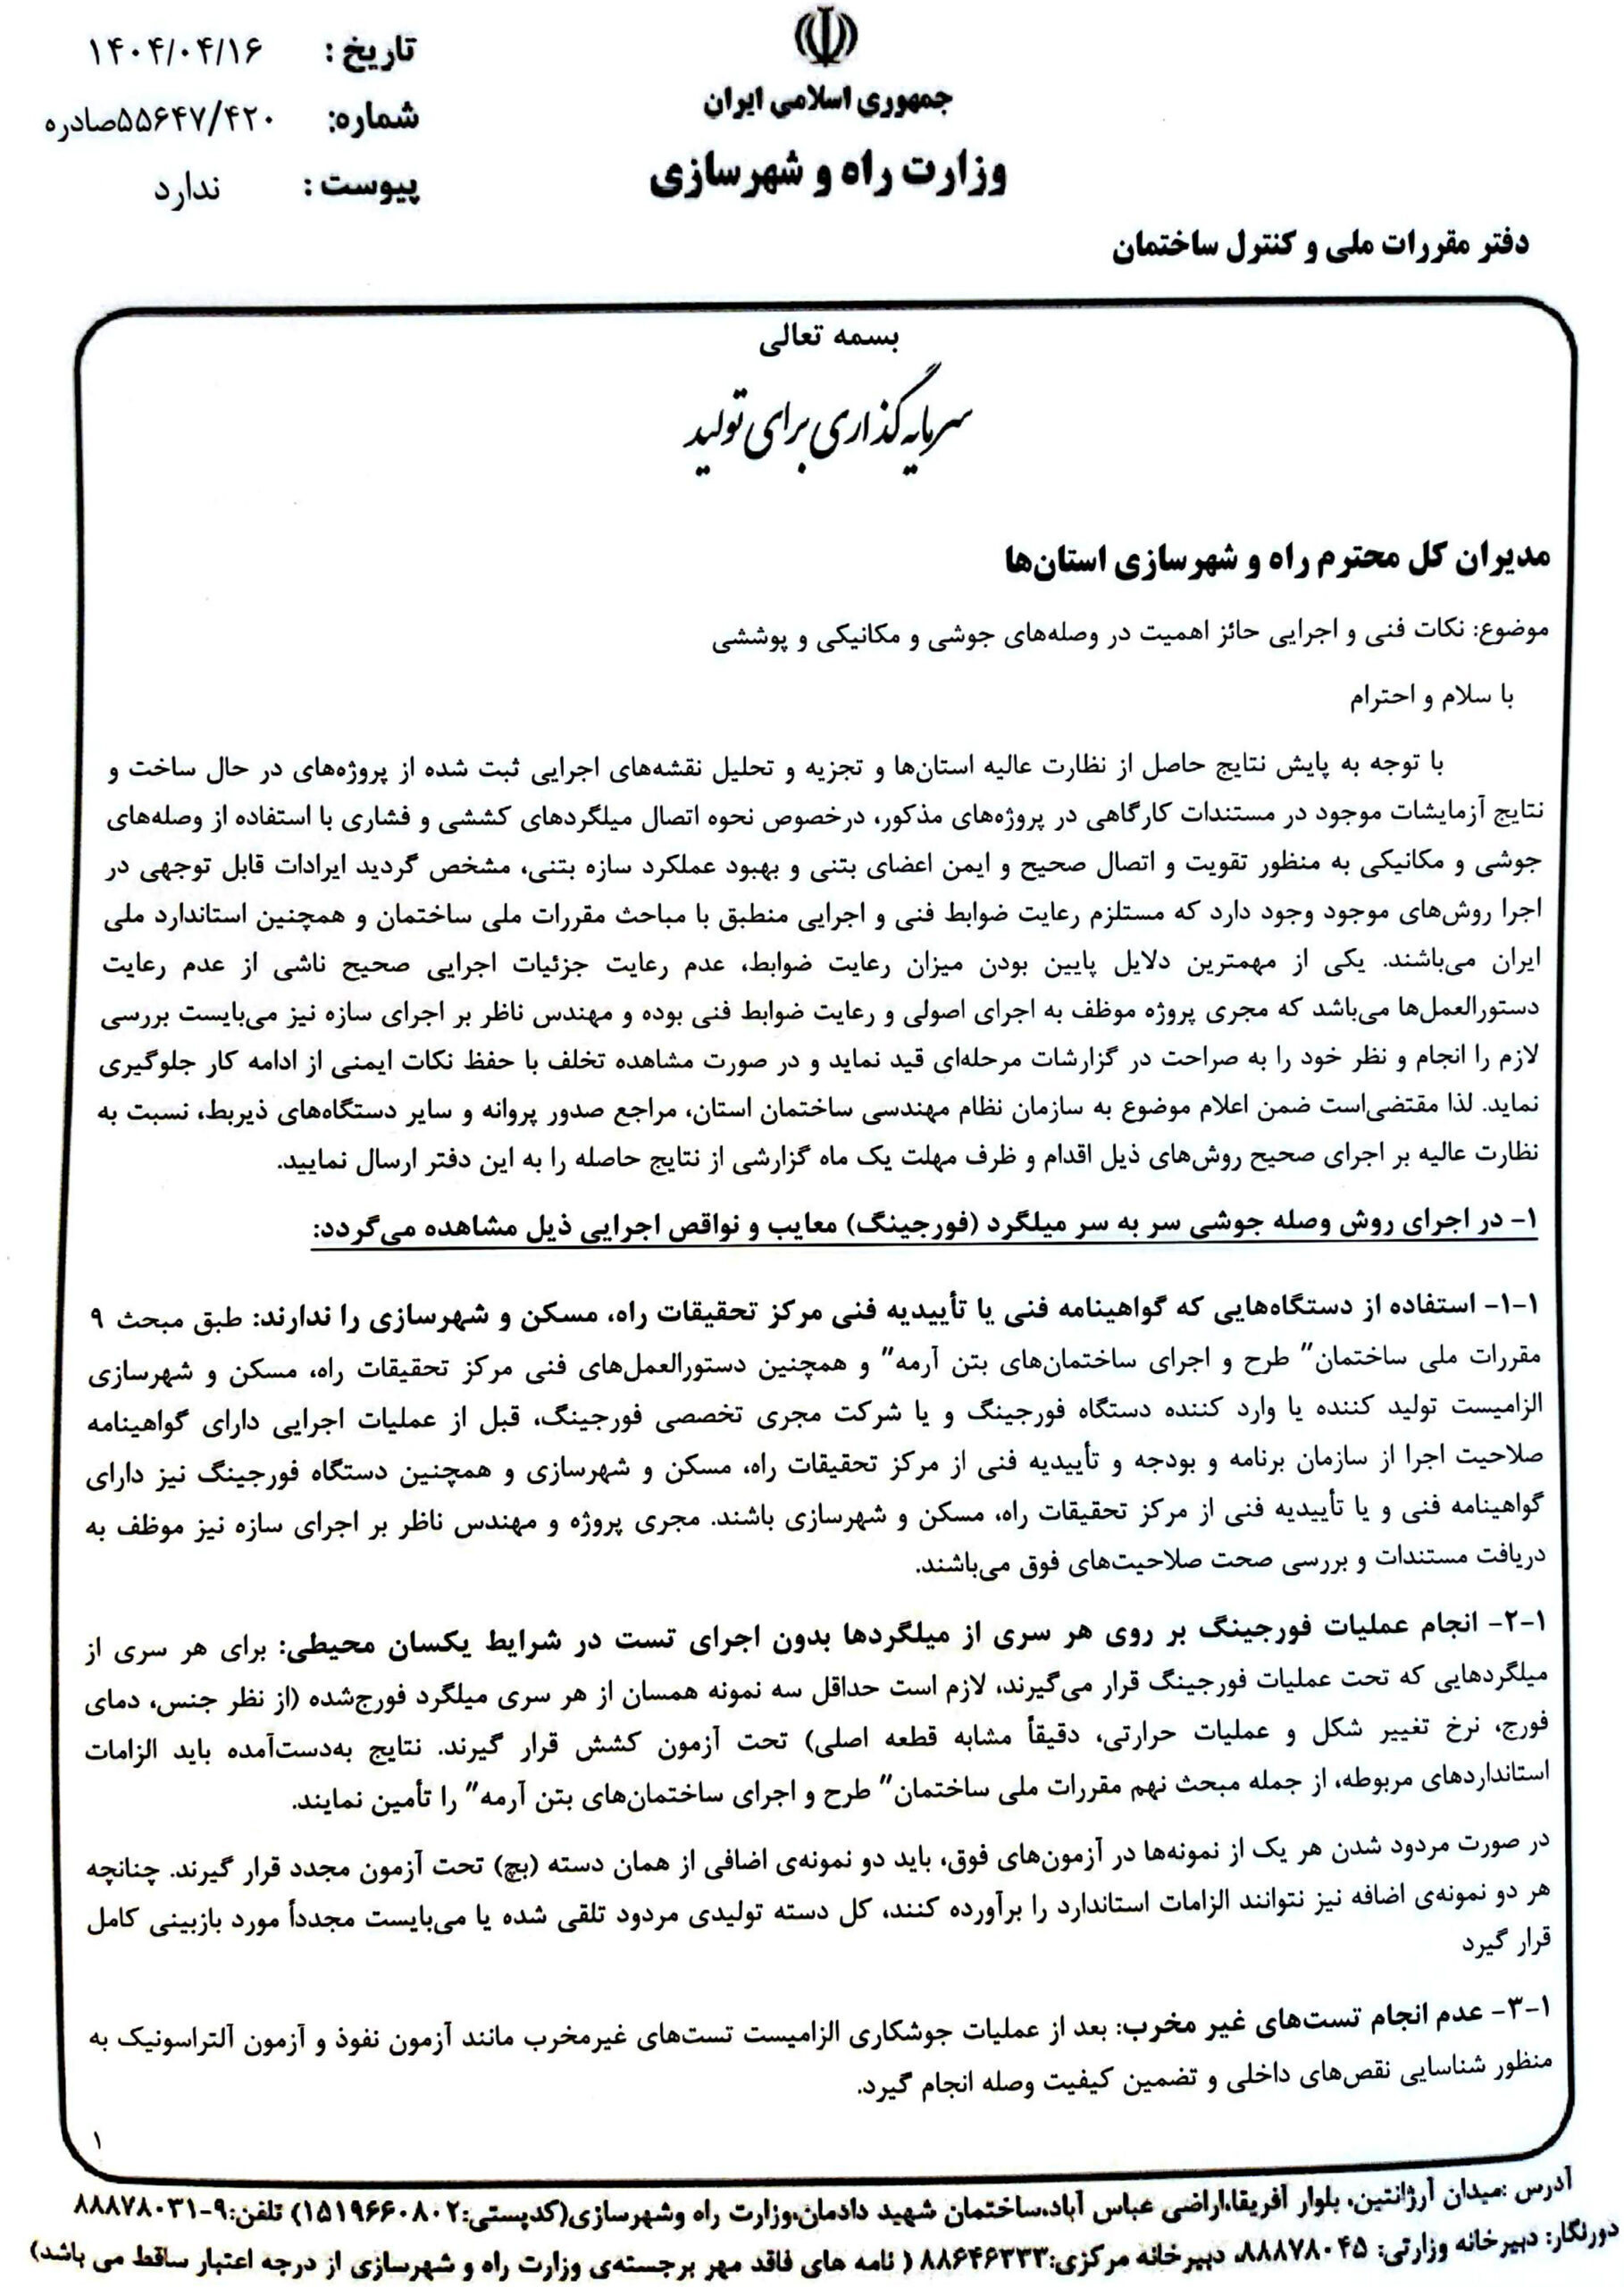 جمهوری اسلامی ایران
وزارت راه و شهرسازی
تاریخ : ۱۴۰۴/۰۴/۱۶
شماره: ۵۵۶۴۷/۴۲۰صادره
پیوست : ندارد
دفتر مقررات ملی و کنترل ساختمان
بسمه تعالی
سرمایه‌گذاری برای تولید
مدیران کل محترم راه و شهرسازی استان‌ها
موضوع: نکات فنی و اجرایی حائز اهمیت در وصله‌های جوشی و مکانیکی و پوششی
با سلام و احترام
با توجه به پایش نتایج حاصل از نظارت عالیه استان‌ها و تجزیه و تحلیل نقشه‌های اجرایی ثبت شده از پروژه‌های در حال ساخت و
نتایج آزمایشات موجود در مستندات کارگاهی در پروژه‌های مذکور، درخصوص نحوه اتصال میلگردهای کششی و فشاری با استفاده از وصله‌های
جوشی و مکانیکی به منظور تقویت و اتصال صحیح و ایمن اعضای بتنی و بهبود عملکرد سازه بتنی، مشخص گردید ایرادات قابل توجهی در
اجرا روش‌های موجود وجود دارد که مستلزم رعایت ضوابط فنی و اجرایی منطبق با مباحث مقررات ملی ساختمان و همچنین استاندارد ملی
ایران می‌باشند. یکی از مهمترین دلایل پایین بودن میزان رعایت ضوابط، عدم رعایت جزئیات اجرایی صحیح ناشی از عدم رعایت
دستورالعمل‌ها می‌باشد که مجری پروژه موظف به اجرای اصولی و رعایت ضوابط فنی بوده و مهندس ناظر بر اجرای سازه نیز می‌بایست بررسی
لازم را انجام و نظر خود را به صراحت در گزارشات مرحله‌ای قید نماید و در صورت مشاهده تخلف با حفظ نکات ایمنی از ادامه کار جلوگیری
نماید. لذا مقتضی‌است ضمن اعلام موضوع به سازمان نظام مهندسی ساختمان استان، مراجع صدور پروانه و سایر دستگاه‌های ذیربط، نسبت به
نظارت عالیه بر اجرای صحیح روش‌های ذیل اقدام و ظرف مهلت یک ماه گزارشی از نتایج حاصله را به این دفتر ارسال نمایید.
۱- در اجرای روش وصله جوشی سر به سر میلگرد (فورجینگ) معایب و نواقص اجرایی ذیل مشاهده می‌گردد:
۱-۱- استفاده از دستگاه‌هایی که گواهینامه فنی یا تأییدیه فنی مرکز تحقیقات راه، مسکن و شهرسازی را ندارند: طبق مبحث ۹
مقررات ملی ساختمان" طرح و اجرای ساختمان‌های بتن آرمه" و همچنین دستورالعمل‌های فنی مرکز تحقیقات راه، مسکن و شهرسازی
الزامیست تولید کننده یا وارد کننده دستگاه فورجینگ و یا شرکت مجری تخصصی فورجینگ، قبل از عملیات اجرایی دارای گواهینامه
صلاحیت اجرا از سازمان برنامه و بودجه و تأییدیه فنی از مرکز تحقیقات راه، مسکن و شهرسازی و همچنین دستگاه فورجینگ نیز دارای
گواهینامه فنی و یا تأییدیه فنی از مرکز تحقیقات راه، مسکن و شهرسازی باشند. مجری پروژه و مهندس ناظر بر اجرای سازه نیز موظف به
دریافت مستندات و بررسی صحت صلاحیت‌های فوق می‌باشند.
۱-۲- انجام عملیات فورجینگ بر روی هر سری از میلگردها بدون اجرای تست در شرایط یکسان محیطی: برای هر سری از
میلگردهایی که تحت عملیات فورجینگ قرار می‌گیرند، لازم است حداقل سه نمونه همسان از هر سری میلگرد فورج‌شده (از نظر جنس، دمای
فورج، نرخ تغییر شکل و عملیات حرارتی، دقیقاً مشابه قطعه اصلی) تحت آزمون کشش قرار گیرند. نتایج به‌دست‌آمده باید الزامات
استانداردهای مربوطه، از جمله مبحث نهم مقررات ملی ساختمان" طرح و اجرای ساختمان‌های بتن آرمه" را تأمین نمایند.
در صورت مردود شدن هر یک از نمونه‌ها در آزمون‌های فوق، باید دو نمونه‌ی اضافی از همان دسته (بچ) تحت آزمون مجدد قرار گیرند. چنانچه
هر دو نمونه‌ی اضافه نیز نتوانند الزامات استاندارد را برآورده کنند، کل دسته تولیدی مردود تلقی شده یا می‌بایست مجدداً مورد بازبینی کامل
قرار گیرد
۱-۳- عدم انجام تست‌های غیر مخرب: بعد از عملیات جوشکاری الزامیست تست‌های غیرمخرب مانند آزمون نفوذ و آزمون آلتراسونیک به
منظور شناسایی نقص‌های داخلی و تضمین کیفیت وصله انجام گیرد.
۱
آدرس :میدان آرژانتین، بلوار آفریقا،اراضی عباس آباد،ساختمان شهید دادمان،وزارت راه وشهرسازی(کدپستی:۱۵۱۹۶۶۰۸۰۲) تلفن:۹-۸۸۸۷۸۰۳۱
دورنگار: دبیرخانه وزارتی: ۸۸۸۷۸۰۴۵، دبیرخانه مرکزی:۸۸۶۴۶۳۳۳ ( نامه های فاقد مهر برجسته‌ی وزارت راه و شهرسازی از درجه اعتبار ساقط می باشد)